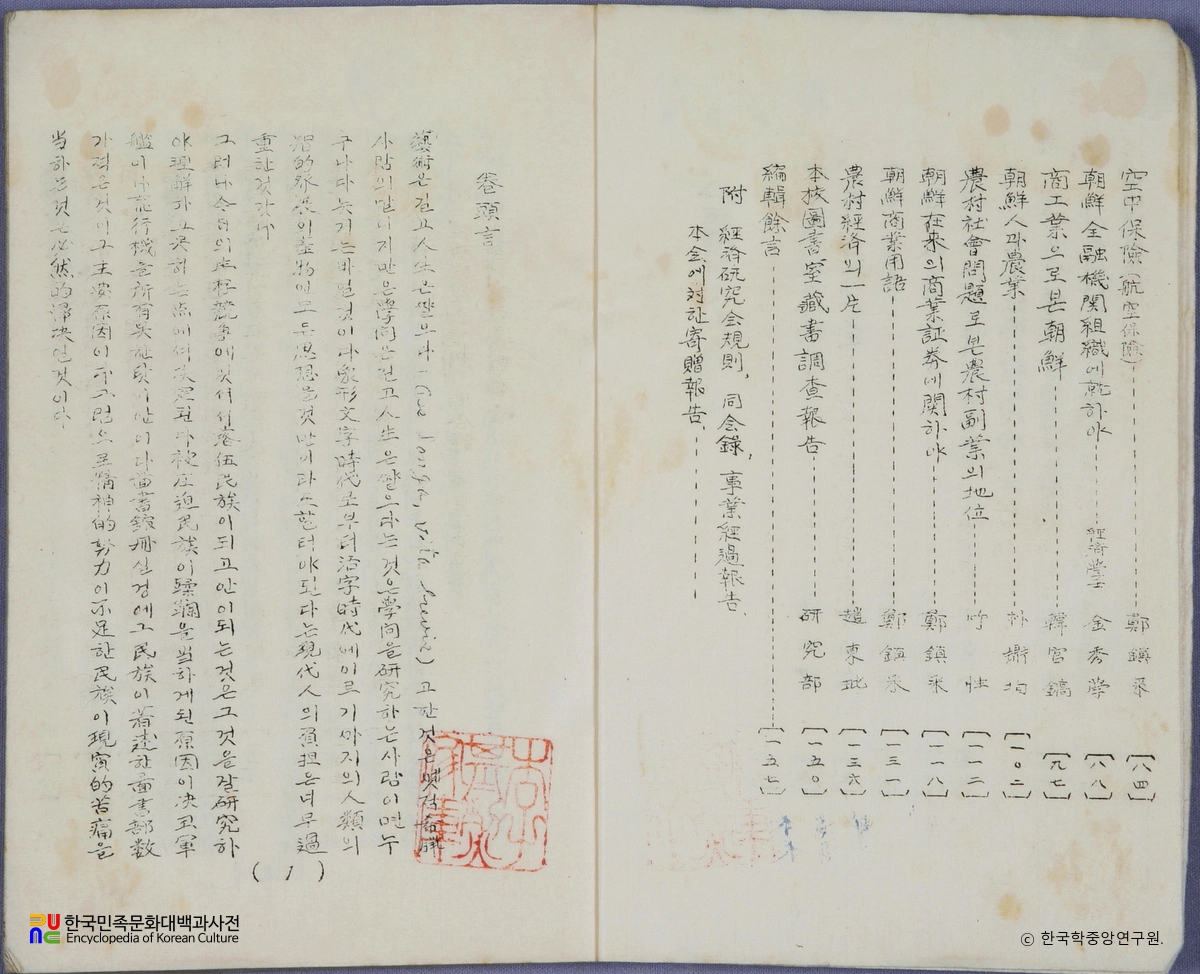 空中保險(航空保險) 鄭鎭 〔八四〕
朝鮮金融機関組織에就하야 經濟學士 金秀學 〔八八〕
商工業으로본朝鮮 韓宮鎬 〔九七〕
朝鮮人과農業 朴 均 〔一〇二〕
農村社會問題로본農村副業의地位 〔一一二〕
朝鮮在來의商業証券에関하야 鄭鎭 〔一一八〕
朝鮮商業用語 鄭鎭 〔一三一〕
農村經済의一片 趙東 〔一三六〕
本校圖書室藏書調査報告 研究部 〔一五〇〕
編輯餘言 〔一五七〕
附 經済研究会規則, 同会錄, 事業經過報告,
本会에対한寄贈報告,
卷頭言
藝術은길고人生은짤으다 고한것은
사람의말니지만은學问은길고人生은짤으다는것은學问을研究하는사람이면누
구나다늣기는바일것이다象形文字時代로부터活字時代에이르기까지의人類의
的發展이産物이고든思想을것만이라도할터야된다는現代人의負担은너무過
重한것갓다
그러나今日의生存競爭에잇서서落伍民族이되고안이되는것은그것을잘研究하
야理解하고못하는点에서决定된다被圧迫民族이蹂躙을当하게된原因이决코軍
艦이나飛行機를所有못한탓이안이다圖書舘冊실경에그民族이著述한圖書部数
가적은것이그主要原因이다그럼으로精神的努力이不足한民族이現實的苦痛을
当하는것은必然的歸决인것이다
(1)
한국민족문화대백과사전
Encyclopedia of Korean Culture
© 한국학중앙연구원.